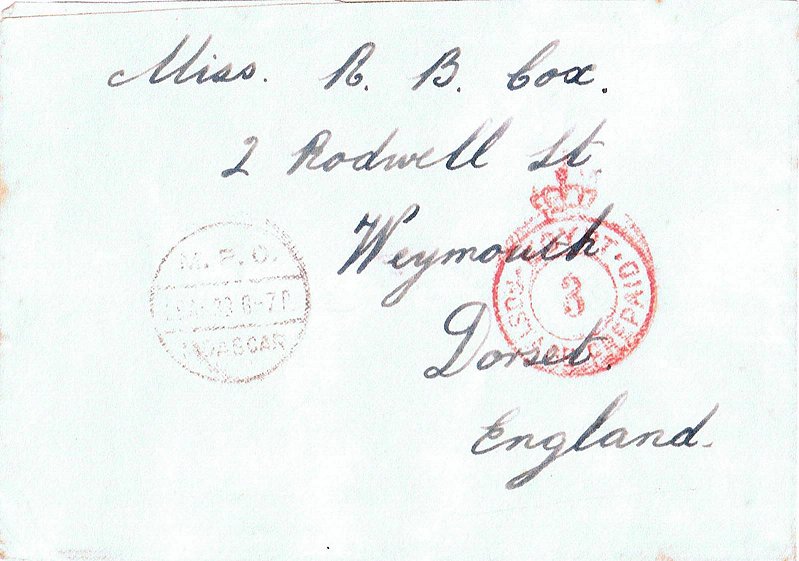 Miss. R. B. Cox.
2 Rodwell St
Weymouth
Dorset.
England.
M. P. O.
8-7P
3
POST
PREPAID